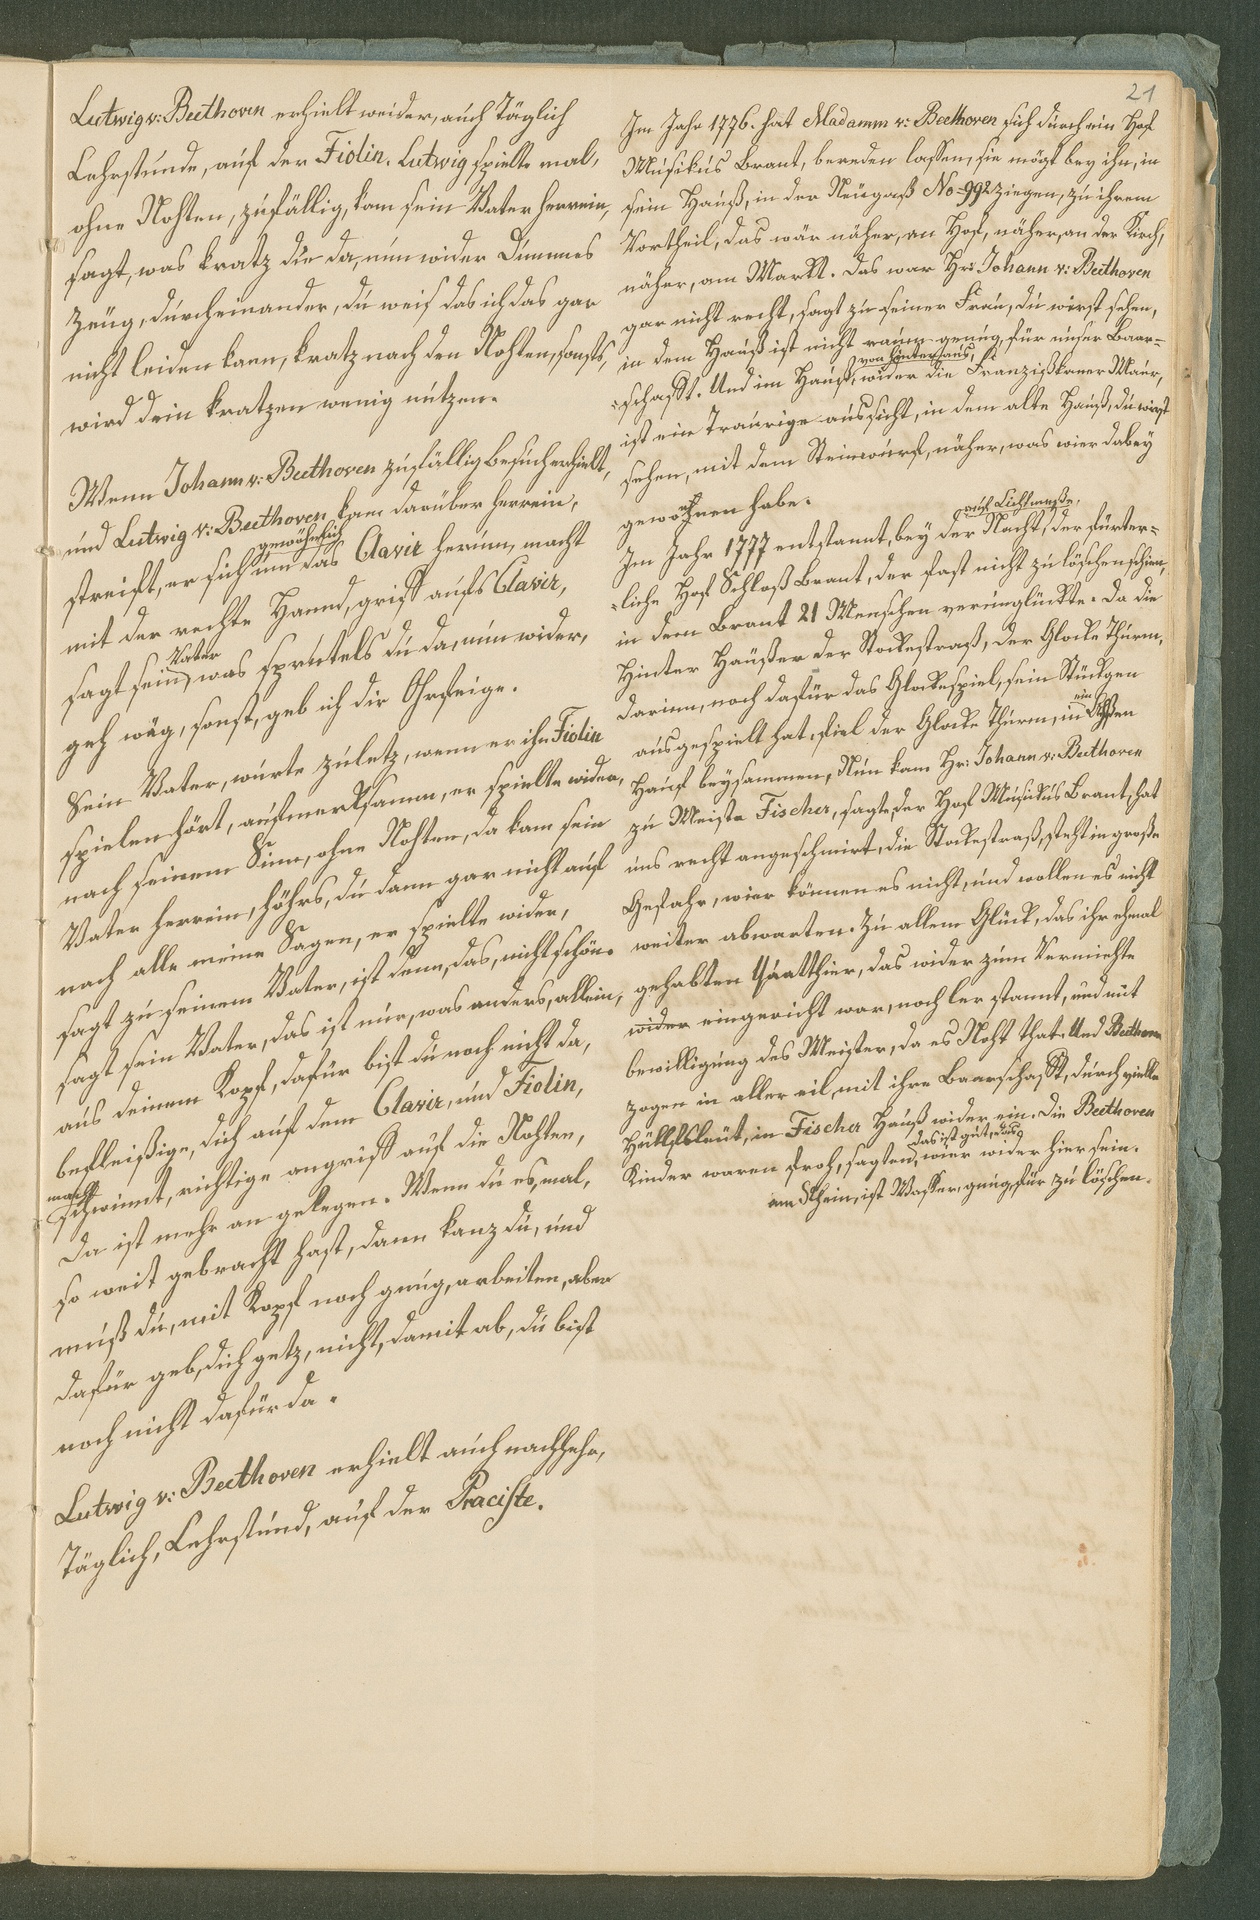 21
Lutwig v: Beethoven erhielt weider, auch Täglich
Lehrstunde, auf der Fiolin. Lutwig spielte mal,
ohne Nohten, zufällig, kam sein Vater herrein,
sagt, was kratz du da, nun wider Dummes
Zeug, durcheinander, du weis das ich das gar
nicht leiden kann, kratz nach den Nohten, sonsts,
wird dein kratzen wenig nutzen.
Wenn Johann v: Beethoven zufällig besuch erhielt,
und Lutwig v: Beethoven kam darüber herrein,
gewöhnlich
streift, er sich um das Clavir herum, macht
mit der rechte Hannd, griff aufs Clavir,
Vater
sagt sein, was sprutels du da, nun wider,
geh wäg, sonst, geb ich dir Ohrfeige.
Sein Vater, wurte zuletz, wenn er ihn Fiolin
spielen hört, aufmerksamm, er spielte wider,
nach seinem Sinn, ohne Nohten, da kam sein
Vater herrein, höhrs, du dann gar nicht auf
nach alle meine Sagen, er spielte wider,
sagt zu seinem Vater, ist denn, das, nicht schön.
sagt sein Vater, das ist nur, was anders, allein,
aus deinem Kopf, dafür bist du noch nicht da,
befleißige, dich auf dem Clavir, und Fiolin,
mach
schwinnt, richtige angriff auf die Nohten,
Da ist mehr an gelegen. Wenn du es, mal,
so weit gebracht hast, dann kanz du, und
muß du, mit Kopf noch gnug, arbeiten, aber
dafür geb, dich getz, nicht, damit ab, du bist
noch nicht dafür da.
Lutwig v: Beethoven erhielt auch nachhehr,
Täglich, Lehrstund, auf der Praciste.
Im Jahr 1776. hat Madamm v: Beethoven sich durch ein Hof
Musikus Brant, bereden lassen, sie mögt bey ihn, in
sein Hauß, in der Neugaß No=992 ziegen, zu ihrem
Vortheil, das wär näher, an Hof, näher, an der Kirch,
näher, am Markt. Das war Hr: Johann v: Beethoven
gar nicht recht, sagt zu seiner Frau, du wirst sehen,
in dem Hauß ist nicht raum genug, für unser Baar=
von hinterhaus,
=schafft. Und im Hauß, wider die Franzißkaner Maur,
ist eine Traurige aussicht, in dem alte Hauß, du wirst
sehen, mit dem Steinwurf, näher, was wier dabey
gewohnen habe.
auf Lichtmeße,
Im Jahr 1777 entstannt, bey der Nacht, der fürter=
=liche Hof Schloß Brant, der fast nicht zu löschen schien,
in dem Brant 21 Menschen verunglückte. Da die
Hinter Häußer der Stockestraß, der Glocke Thurm,
darinn, noch dafür das Glockespiel, sein Stückgen
ein
ausgespielt hat, fiel der Glocke Thurm, in
Hauf beysammen, Nun kam Hr: Johann v: Beethoven
zu Meiste Fischer, sagte, der Hof Musikus Brant, hat
uns recht angeschmirt, die Stockestraß, steht in große
Gefahr, wier können es nicht, und wollen es nicht
weiter abwarten. Zu allem Glück, das ihr ehmal
gehabten Quatthier, das wider zum Vermiehte
wider eingericht war, noch ler stannt, und mit
bewilligung des Meister, da es Noht that. Und Beethoven
zogen in aller eil, mit ihre Baarschafft, durch vielle
Hülfsleut, in Fischer Hauß wider ein. Die Beethoven
das ist gut, das
Kinder waren froh, sagten, wier wider hier sein.
am Rhein, ist Wasser, gnug, für zu löschen.